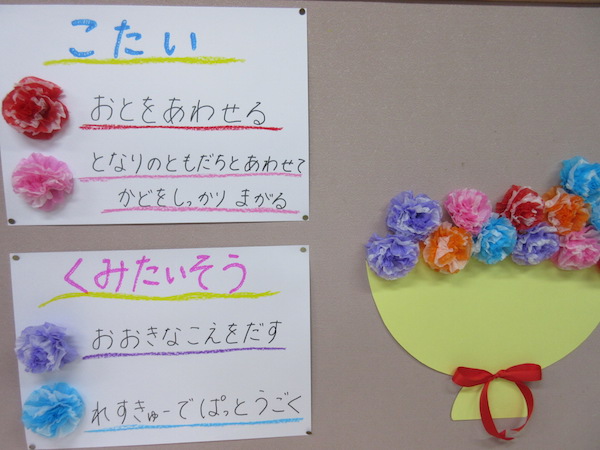 こたい
おとをあわせる
となりのともだちとあわせて
かどをしっかり まがる
くみたいそう
おおきなこえをだす
れすきゅーでぱっとうごく